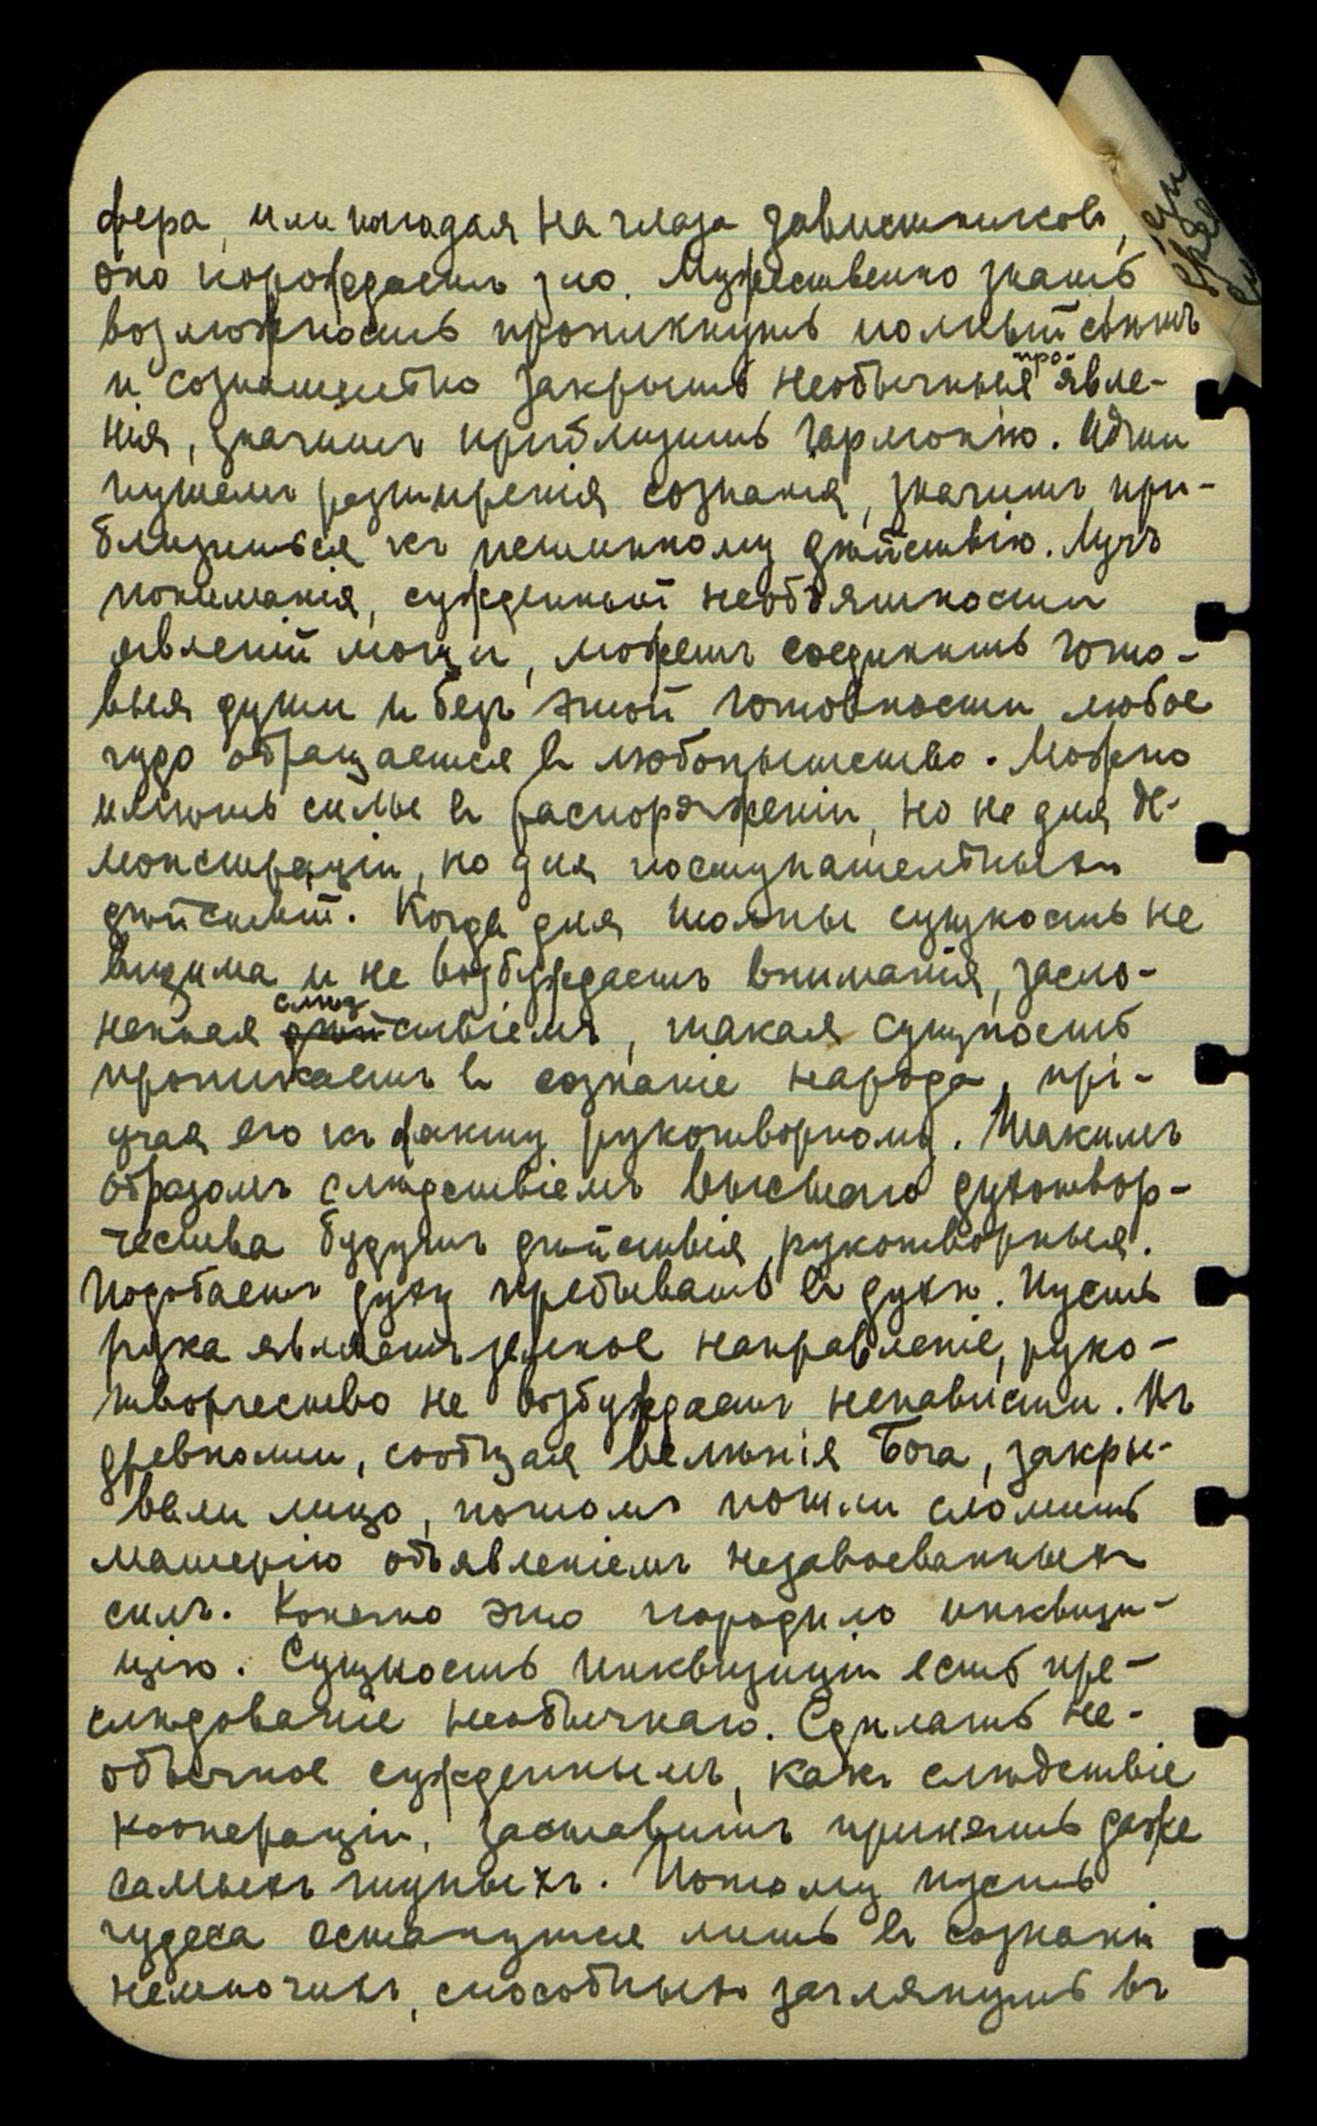 фера, или попадая на глаза завистниковъ,
оно порождаетъ зло. Мужественно знать
возможность проникнуть полный свѣтъ
и сознательно закрыть необычныя про-
явле-
нія, значитъ приблизить гармонію. Идти
путемъ разширенія сознанія, значитъ при-
близиться къ истинному дѣйствію. Лучъ
пониманія, сужденный необъятности
явленій мощи, можетъ соединить гото-
выя души и безъ этой готовности любое
чудо обращается въ любопытство. Можно
имѣть силы въ распоряженіи, но не для де-
монстраціи, но для поступательныхъ
дѣйствій. Когда для толпы сущность не
видима и не возбуждаетъ вниманія, засло-
ненная слѣд
дѣйствіемъ, такая сущность
проникаетъ въ сознаніе народа, прі-
учая его къ факту рукотворному. Такимъ
образомъ слѣдствіемъ высшаго духотвор-
чества будутъ дѣйствія рукотворныя.
Подобаетъ духу пребывать въ духѣ. Пусть
рука являетъ земное направленіе, руко-
творчество не возбуждаетъ ненависти. Въ
древности, сообщая велѣнія Бога, закры-
вали лицо, потомъ пошли сломить
матерію объявленіемъ незавоеванныхъ
силъ. Конечно это породило инквизи-
цію. Сущность Инквизиціи есть пре-
слѣдованіе необычнаго. Сдѣлать не-
обычное сужденнымъ, какъ слѣдствіе
коопераціи, заставитъ принять даже
самыхъ тупыхъ. Потому пусть
чудеса останутся лишь въ сознаніи
немногихъ, способныхъ заглянуть въ